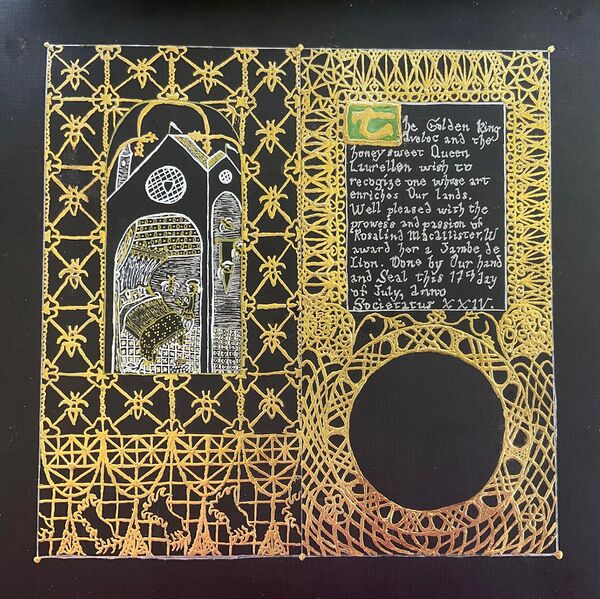 The Golden King
Aveloc and the
honey sweet Queen
Laurellen wish to
recogize one whose art
enriches Our lands.
Well pleased with the
prowess and passion of
Rosalind MacAllister, W
award her a Jambe de
Lion. Done by Our hand
and Seal this 17th day
of July, Anno
Societatus XXIV.